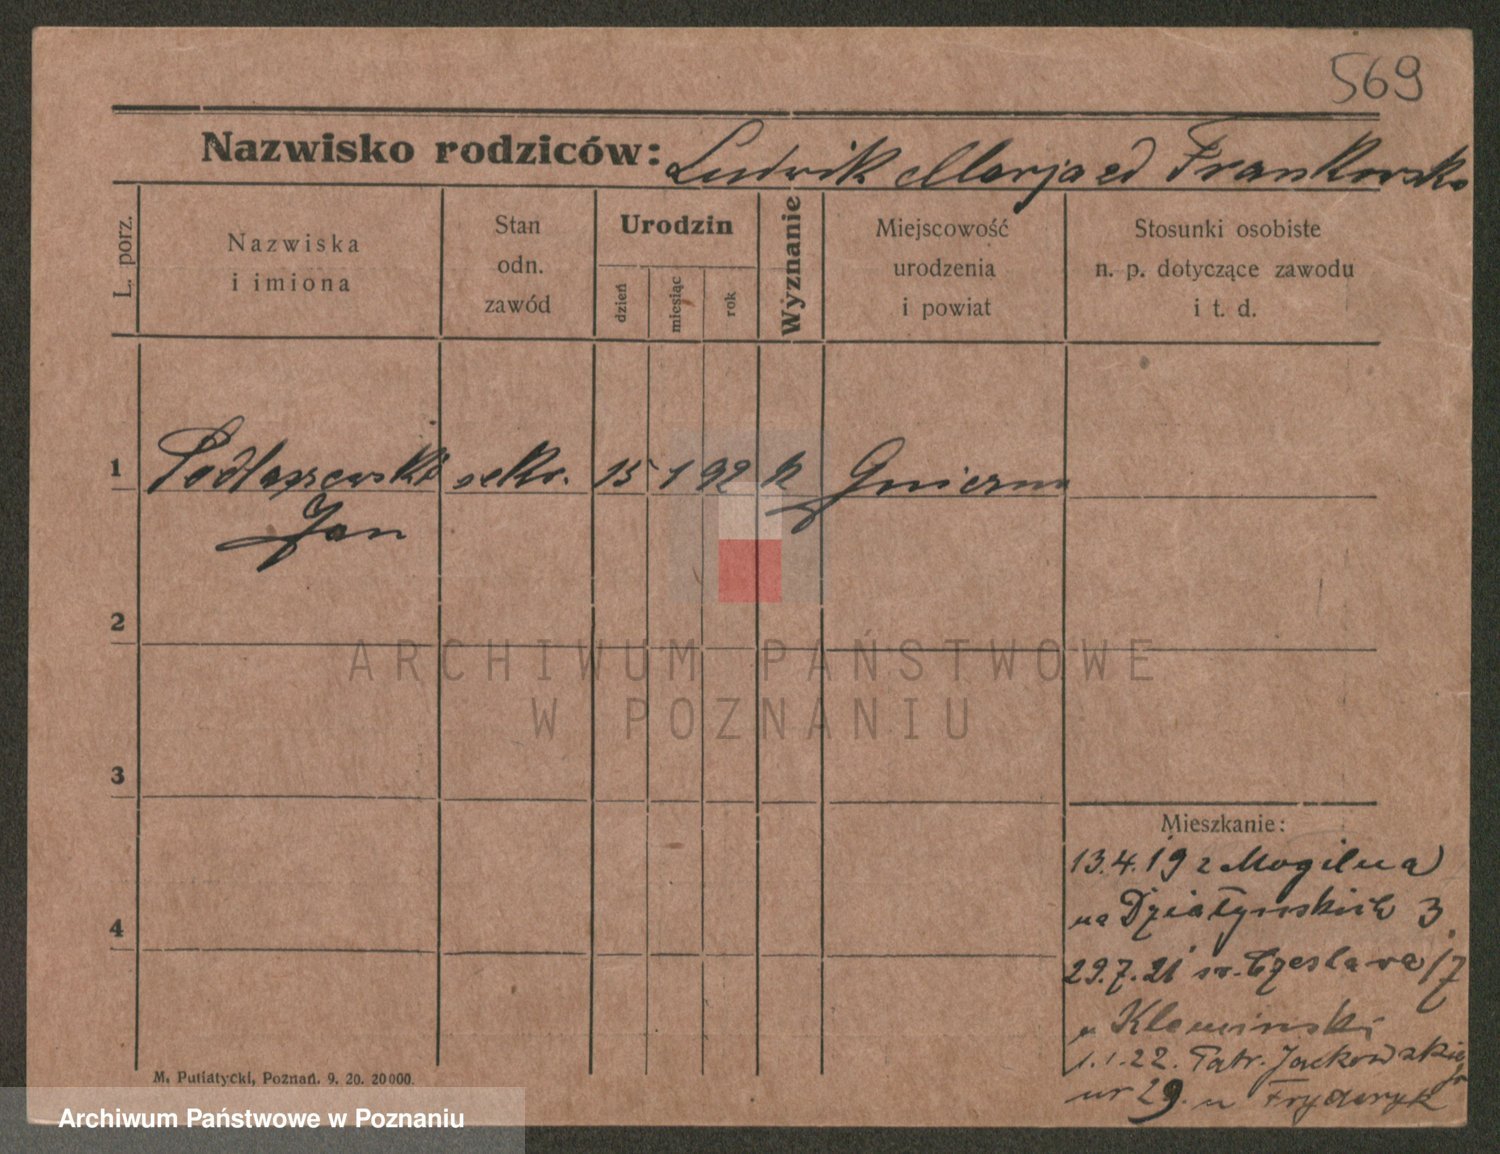 569
Nazwisko rodziców: Ludwik Marja ed Frankowska
L. porz.
Nazwiska
i imiona
Stan
odn.
zawód
Urodzin
dzień
miesiąc
rok
Wyznanie
Miejscowość
urodzenia
i powiat
Stosunki osobiste
n. p. dotyczące zawodu
i t. d.
1 Podlaszewski sekr. 15 1 92 k
Jan
2
3
4
Mieszkanie:
13.4.19 z Mogilna
na Działyńskich 3.
29.7.21 św. Czesława 17
u Klemiński
1.1.22. Patr. Jackowskiego
nr 29. u Fryderyk
M. Putiatycki, Poznań. 9. 20. 20000.
ARCHIWUM PAŃSTWOWE
W POZNANIU
Archiwum Państwowe w Poznaniu